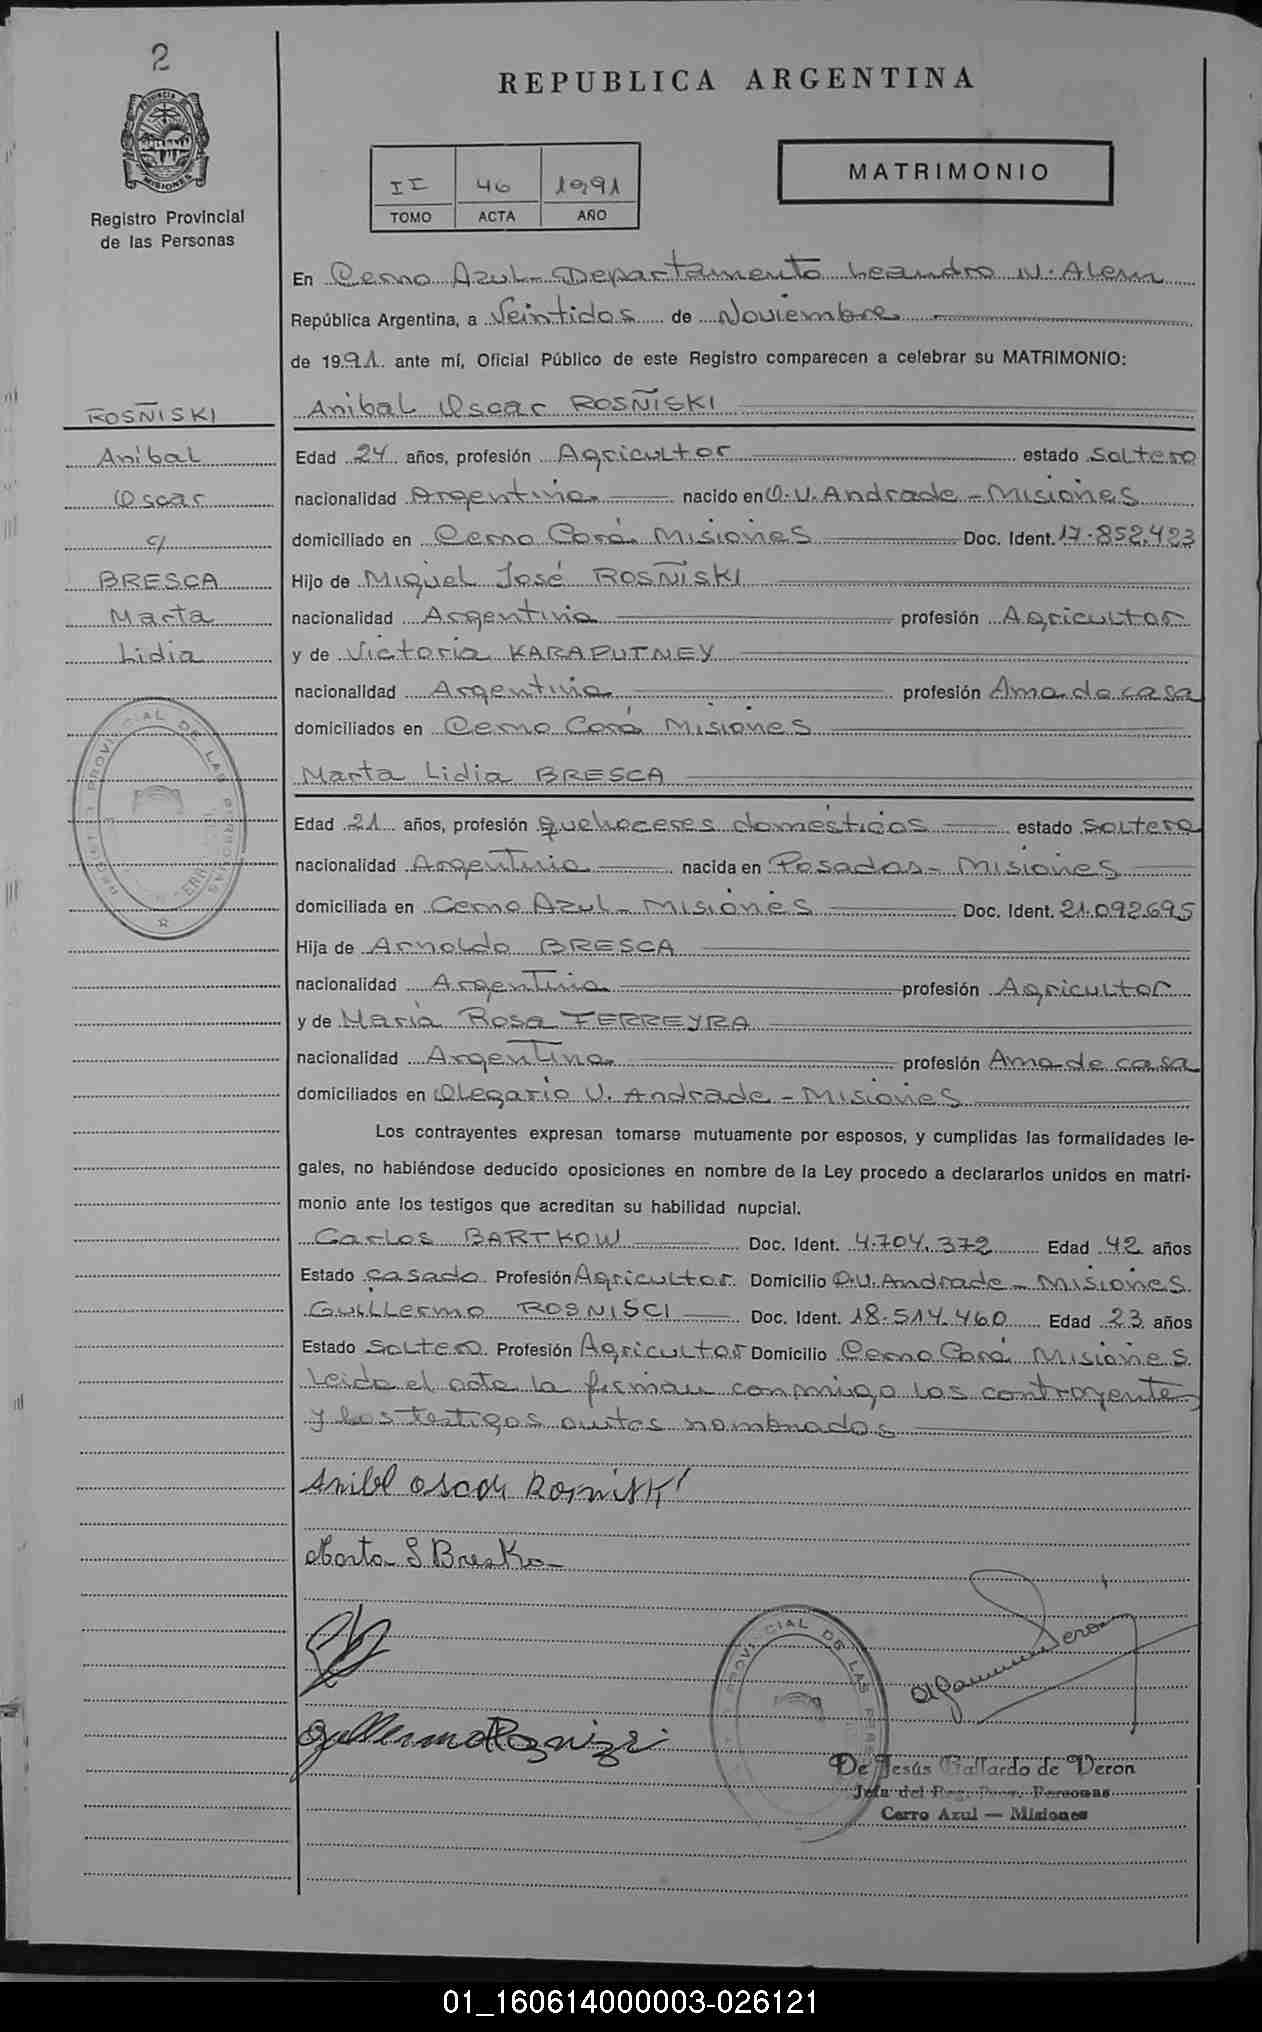 2
PROVINCIA
MISIONES
Registro Provincial
de las Personas
REPUBLICA ARGENTINA
II 46 1991
TOMO ACTA AÑO
MATRIMONIO
En Cerro Azul - Departamento Leandro N. Alem
República Argentina, a Veintidos de Noviembre
de 1991 ante mí, Oficial Público de este Registro comparecen a celebrar su MATRIMONIO:
ROSÑISKI
Anibal
Oscar
c/
BRESCA
Marta
Lidia
Anibal Oscar ROSÑISKI
Edad 24 años, profesión Agricultor estado Soltero
nacionalidad Argentina nacido en O.V. Andrade - Misiones
domiciliado en Cerro Corá Misiones Doc. Ident. 17.852.423
Hijo de Miguel José ROSÑISKI
nacionalidad Argentina profesión Agricultor
y de Victoria KARAPUTNEY
nacionalidad Argentina profesión Ama de casa
domiciliados en Cerro Corá Misiones
Marta Lidia BRESCA
Edad 21 años, profesión quehaceres domésticos estado Soltera
nacionalidad Argentina nacida en Posadas - Misiones
domiciliada en Cerro Azul - Misiones Doc. Ident. 21.092.695
Hija de Arnoldo BRESCA
nacionalidad Argentina profesión Agricultor
y de María Rosa FERREYRA
nacionalidad Argentina profesión Ama de casa
domiciliados en Olegario V. Andrade - Misiones
Los contrayentes expresan tomarse mutuamente por esposos, y cumplidas las formalidades le-
gales, no habiéndose deducido oposiciones en nombre de la Ley procedo a declararlos unidos en matri-
monio ante los testigos que acreditan su habilidad nupcial.
Carlos BARTKOW Doc. Ident. 4.704.372 Edad 42 años
Estado casado Profesión Agricultor Domicilio O.V. Andrade - Misiones
Guillermo ROSNISCI Doc. Ident. 18.514.460 Edad 23 años
Estado Soltero Profesión Agricultor Domicilio Cerro Corá Misiones
Leida el acta la firman conmigo los contrayentes
y los testigos antes nombrados
Anibal Oscar Rosniski
Marta L Breska
Guillermo Roznizci
De Jesús Gallardo de Veron
Jefa del Reg. Prov. Personas
Cerro Azul — Misiones
01_160614000003-026121